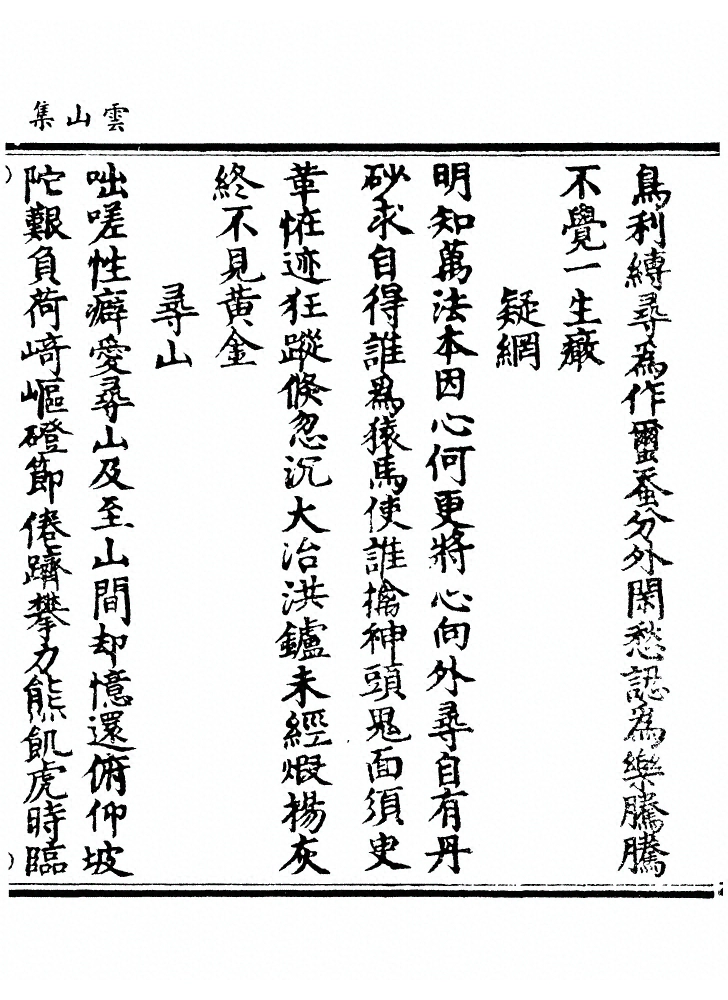 雲山集
為利縳尋為作璽蚕分外閑愁認為樂騰騰
不覺一生癡
疑網
明知萬法本因心何更將心向外尋自有丹
砂求自得誰為猿馬使誰擒神頭鬼面須臾
革恠迹狂蹤倐忽沉大冶洪鑪未經煅楊灰
終不見黃金
尋山
咄嗟性癖愛尋山及至山間却憶還俯仰坡
陀艱負荷﨑嶇磴節倦躋攀力熊飢虎時臨